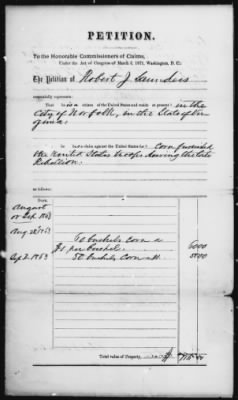 PETITION.
To the Honorable Commissioners of Claims,
Under the Act of Congress of March 3, 1871, Washington, D. C.:
The Petition of Robert J Saunders
respectfully represents:
That he is a citizen of the United States and resides at present in the
City of Norfolk, in the State of Vir
ginia;
has a claim against the United States for corn furnished
the United States troops during the late
Rebellion:
as follows:
Date.
August
or Sep. 1863
Aug 1863
To bushels corn a
$1 per bushel 6000
Sep 2. 1863 50 bushels corn 5000
Total value of Property, $